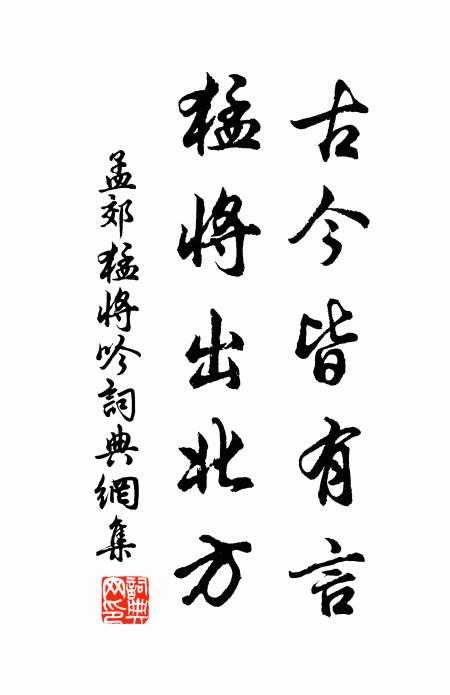 古今皆有言
猛將出北方
孟郊猛將吟詞典網集
詞典網印